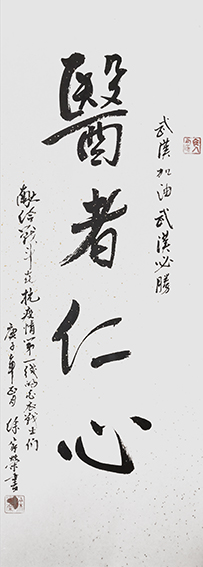 武漢加油武漢必勝
醫者仁心
献给戰斗在抗疫情第一线的白衣戰士们
庚子年 徐 榮書